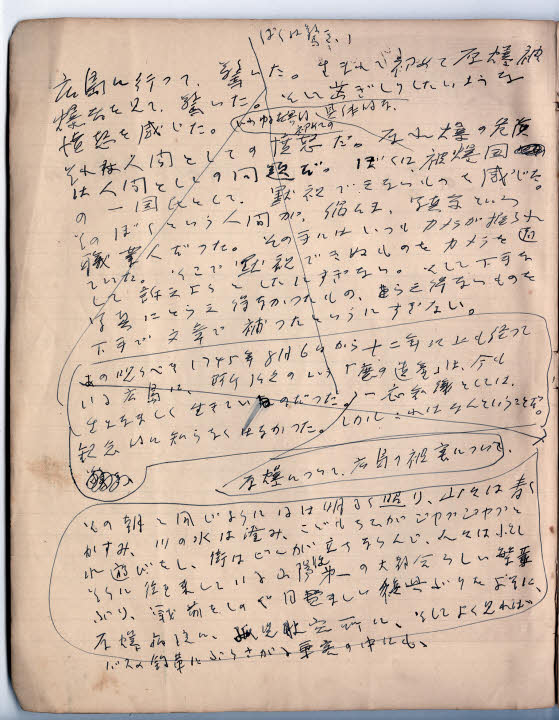 ぼくは驚いた
広島に行って、驚いた。生まれて初めて原爆被
爆者を見て、驚いた。そして歯ぎしりしたいような
憤怒を感じた。
それは人間としての憤怒だ。原水爆の危険
は人間としての問題だ。ぼくは、被爆国
の一国民として、黙視できないものを感じた。
そのぼくという人間が、写真という
職業人だった。その手にはいつもカメラが握られ
ていた。そこで黙視できぬものをカメラを通
して訴えようとしたにすぎない。そして下手な
写真にとらえ得なかったもの、とらえ得ないものを
下手な文章で補ったというにすぎない。
あの呪うべき1945年8月6日から十二年以上も経って
いる広島に、所謂の「魔の遺産」は、今も
生々しく生きていたのだった。一応知識としては、
観念的に知らなくはなかった。しかしこれはなんということだ。
原爆について、広島の被害について、
その朝と同じように陽は明るく照り、山々は青く
かすみ、川の水は澄み、こどもたちがジャブジャブと
水遊びをし、街はビルが立ちならんで、人々は忙し
そうに往き来している山陽第一の大都会らしい繁華
ぶり、戦前をしのぐ目覚ましい復興ぶりをよそに、
原爆病院に、孤児収容所に、そしてよく見れば
バスの釣革にぶらさがる乗客の中にも、